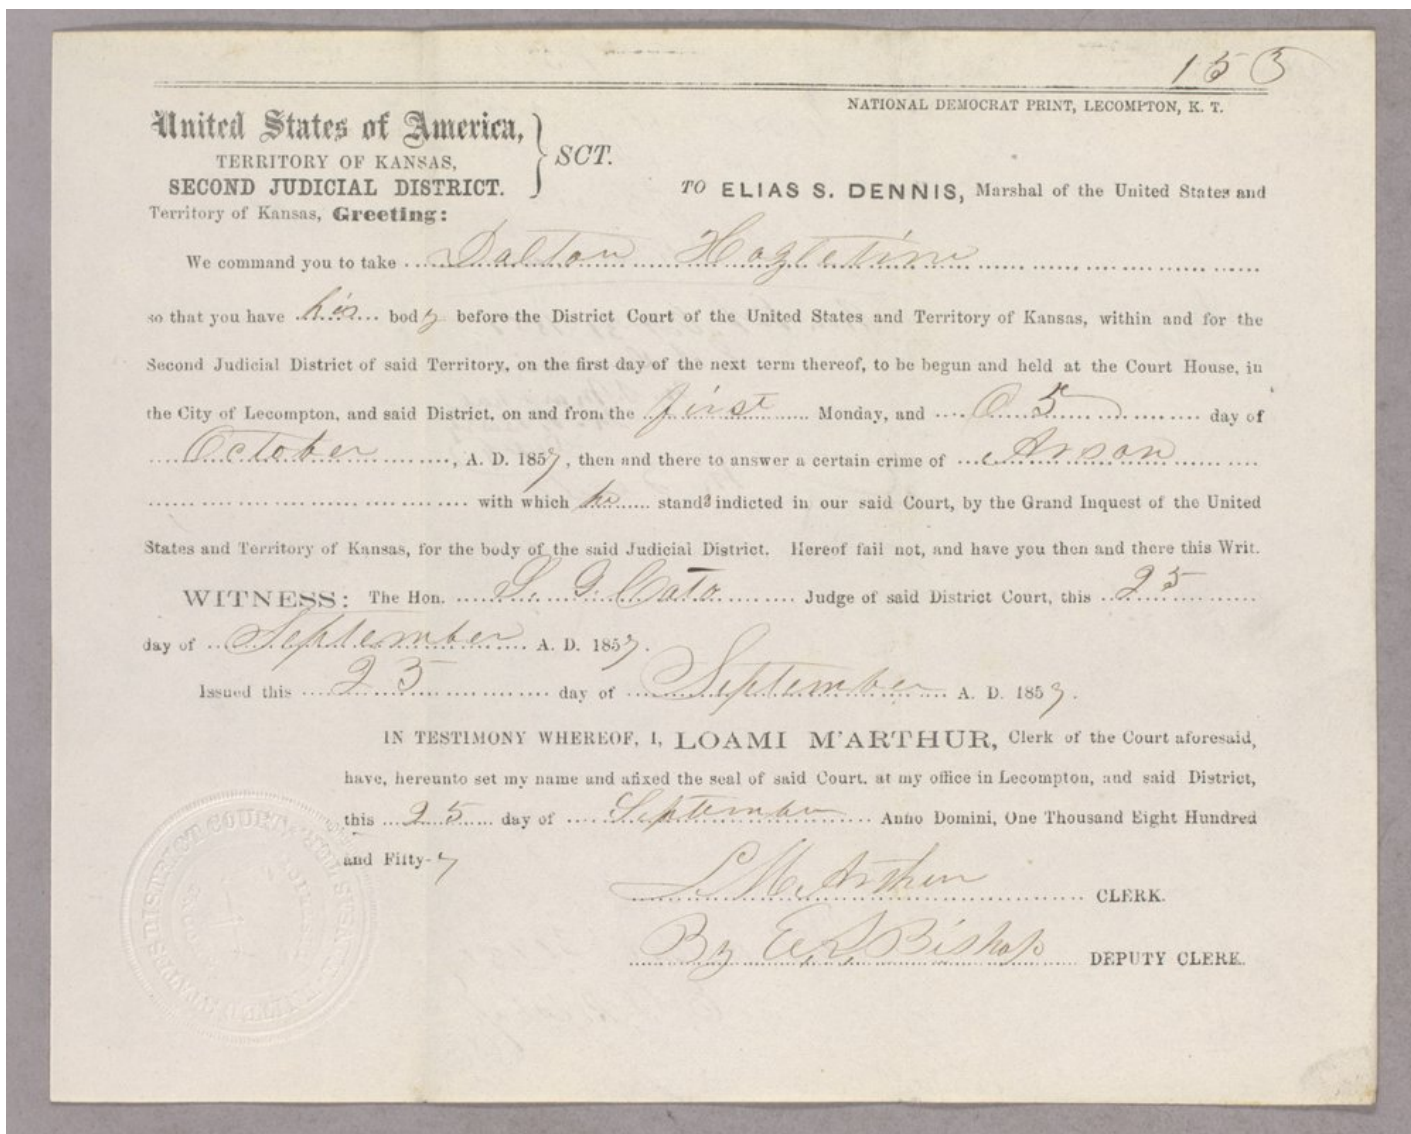 153
NATIONAL DEMOCRAT PRINT, LECOMPTON, K. T.
United States of America,
TERRITORY OF KANSAS,
SECOND JUDICIAL DISTRICT.
SCT.
TO ELIAS S. DENNIS, Marshal of the United States and
Territory of Kansas, Greeting:
We command you to take Dalton Hazletine
so that you have his body before the District Court of the United States and Territory of Kansas, within and for the
Second Judicial District of said Territory, on the first day of the next term thereof, to be begun and held at the Court House, in
the City of Lecompton, and said District, on and from the first Monday, and 05 day of
October, A. D. 1857, then and there to answer a certain crime of Arson
with which he stands indicted in our said Court, by the Grand Inquest of the United
States and Territory of Kansas, for the body of the said Judicial District. Hereof fail not, and have you then and there this Writ.
WITNESS: The Hon. S. G. Cato Judge of said District Court, this 25
day of September A. D. 1857.
Issued this 25 day of September A. D. 1857.
IN TESTIMONY WHEREOF, I, LOAMI M'ARTHUR, Clerk of the Court aforesaid,
have, hereunto set my name and afixed the seal of said Court. at my office in Lecompton, and said District,
this 25 day of September Anno Domini, One Thousand Eight Hundred
and Fifty-7
L. McArthur CLERK.
By E. S. Bishop DEPUTY CLERK.